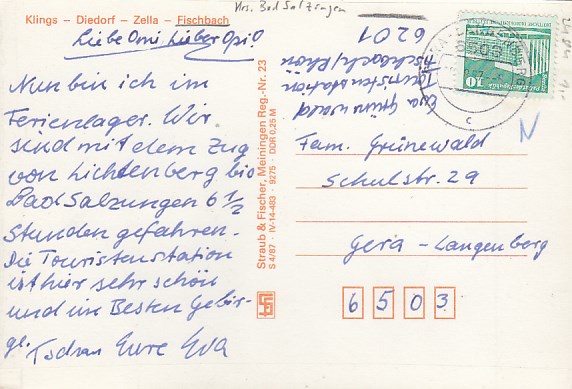 Krs. Bad Salzungen
Klings – Diedorf – Zella – Fischbach
Liebe Omi Lieber Opi!
Nun bin ich im
Ferienlager. Wir
sind mit dem Zug
von Lichtenberg bis
Bad Salzungen 6 1/2
Stunden gefahren.
Die Touristenstation
ist hier sehr schön
und im Besten Gebir-
ge. Tschau Eure Eva
Straub & Fischer, Meiningen Reg.-Nr. 23
S 4/87 · IV-14-483 · 9275 · DDR 0,25 M
Eva Grünwald
Touristenstation
Fischbach/Rhön
6201
10
C
N
Fam. Grünewald
Schulstr. 29
Gera – Langenberg
6503